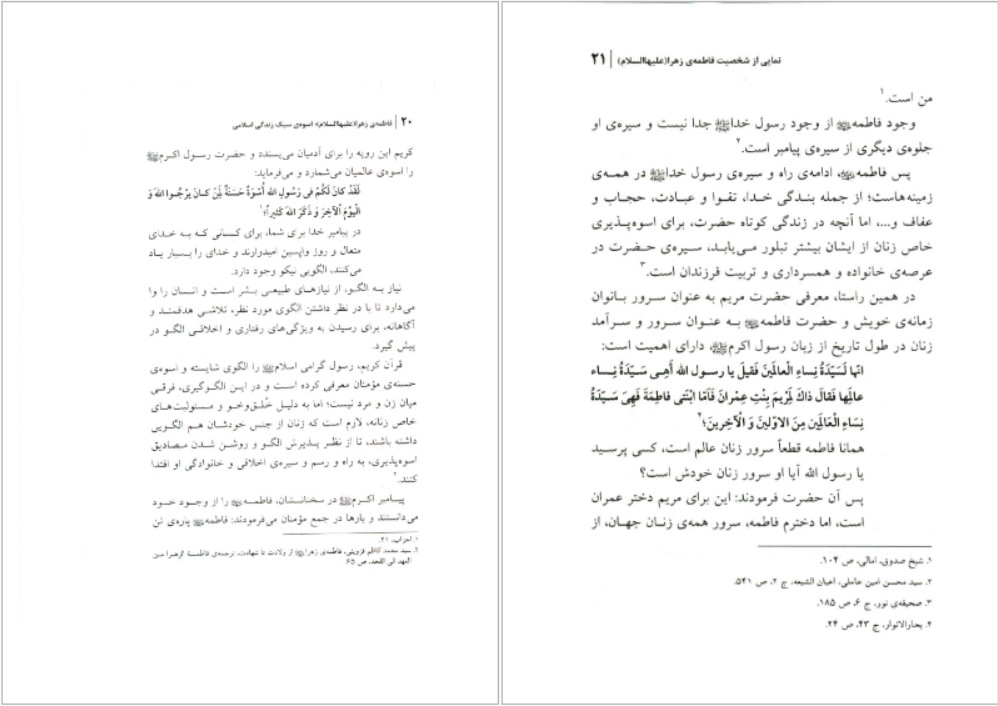 ۲۰ | فاطمه‌ی زهرا(علیهاالسلام)؛ اسوه‌ی سبک زندگی اسلامی
کریم این رویه را برای آدمیان می‌پسندد و حضرت رسول اکرمﷺ
را اسوه‌ی عالمیان می‌شمارد و می‌فرماید:
لَقَدْ كانَ لَكُمْ فی رَسُولِ اللهِ أُسْوَةٌ حَسَنَةٌ لِمَنْ كانَ يَرْجُوا اللهَ وَ
الْيَوْمَ الْآخِرَ وَ ذَكَرَ اللهَ كَثيراً؛۱
در پیامبر خدا برای شما، برای کسانی که به خدای
متعال و روز واپسین امیدوارند و خدای را بسیار یاد
می‌کنند، الگویی نیکو وجود دارد.
نیاز به الگو، از نیازهای طبیعی بشر است و انسان را وا
می‌دارد تا با در نظر داشتن الگوی مورد نظر، تلاشی هدفمند و
آگاهانه، برای رسیدن به ویژگی‌های رفتاری و اخلاقی الگو در
پیش گیرد.
قرآن کریم، رسول گرامی اسلامﷺ را الگوی شایسته و اسوه‌ی
حسنه‌ی مؤمنان معرفی کرده است و در این الگوگیری، فرقی
میان زن و مرد نیست؛ اما به دلیل خُلق‌وخو و مسئولیت‌های
خاص زنانه، لازم است که زنان از جنس خودشان هم الگویی
داشته باشند، تا از نظر پذیرش الگو و روشن شدن مصادیق
اسوه‌پذیری، به راه و رسم و سیره‌ی اخلاقی و خانوادگی او اقتدا
کنند.۲
پیامبر اکرمﷺ در سخنانشان، فاطمه را از وجود خود
می‌دانستند و بارها در جمع مؤمنان می‌فرمودند: فاطمه پاره‌ی تن
۱. احزاب، ۲۱.
۲. سید محمد کاظم قزوینی، فاطمه‌ی زهرا از ولادت تا شهادت، ترجمه‌ی فاطمة الزهرا من
المهد الی اللحد، ص ۶۵.
نمایی از شخصیت فاطمه‌ی زهرا(علیهاالسلام) | ۲۱
من است.۱
وجود فاطمه از وجود رسول خداﷺ جدا نیست و سیره‌ی او
جلوه‌ی دیگری از سیره‌ی پیامبر است.۲
پس فاطمه، ادامه‌ی راه و سیره‌ی رسول خداﷺ در همه‌ی
زمینه‌هاست؛ از جمله بندگی خدا، تقوا و عبادت، حجاب و
عفاف و...، اما آنچه در زندگی کوتاه حضرت، برای اسوه‌پذیری
خاص زنان از ایشان بیشتر تبلور می‌یابد، سیره‌ی حضرت در
عرصه‌ی خانواده و همسرداری و تربیت فرزندان است.۳
در همین راستا، معرفی حضرت مریم به عنوان سرور بانوان
زمانه‌ی خویش و حضرت فاطمه به عنوان سرور و سرآمد
زنان در طول تاریخ از زبان رسول اکرمﷺ، دارای اهمیت است:
انّها لَسَيِّدَةُ نِساءِ الْعالَمينَ فَقيلَ يا رسول الله أهِیَ سَيِّدَةُ نِساء
عالَمِها فَقالَ ذاكَ لِمَرْيَمَ بِنْتِ عِمْرانَ فَامّا ابْنَتی فاطِمَةَ فَهِیَ سَيِّدَةُ
نِسَاءِ الْعَالَمِين مِنَ الاوّلينَ وَ الْآخِرينَ؛۴
همانا فاطمه قطعاً سرور زنان عالم است، کسی پرسید
یا رسول الله آیا او سرور زنان خودش است؟
پس آن حضرت فرمودند: این برای مریم دختر عمران
است، اما دخترم فاطمه، سرور همه‌ی زنان جهان، از
۱. شیخ صدوق، امالی، ص ۱۰۴.
۲. سید محسن امین عاملی، اعیان الشیعه، ج ۲، ص ۵۴۱.
۳. صحیفه‌ی نور، ج ۶، ص ۱۸۵.
۴. بحارالانوار، ج ۴۳، ص ۲۴.